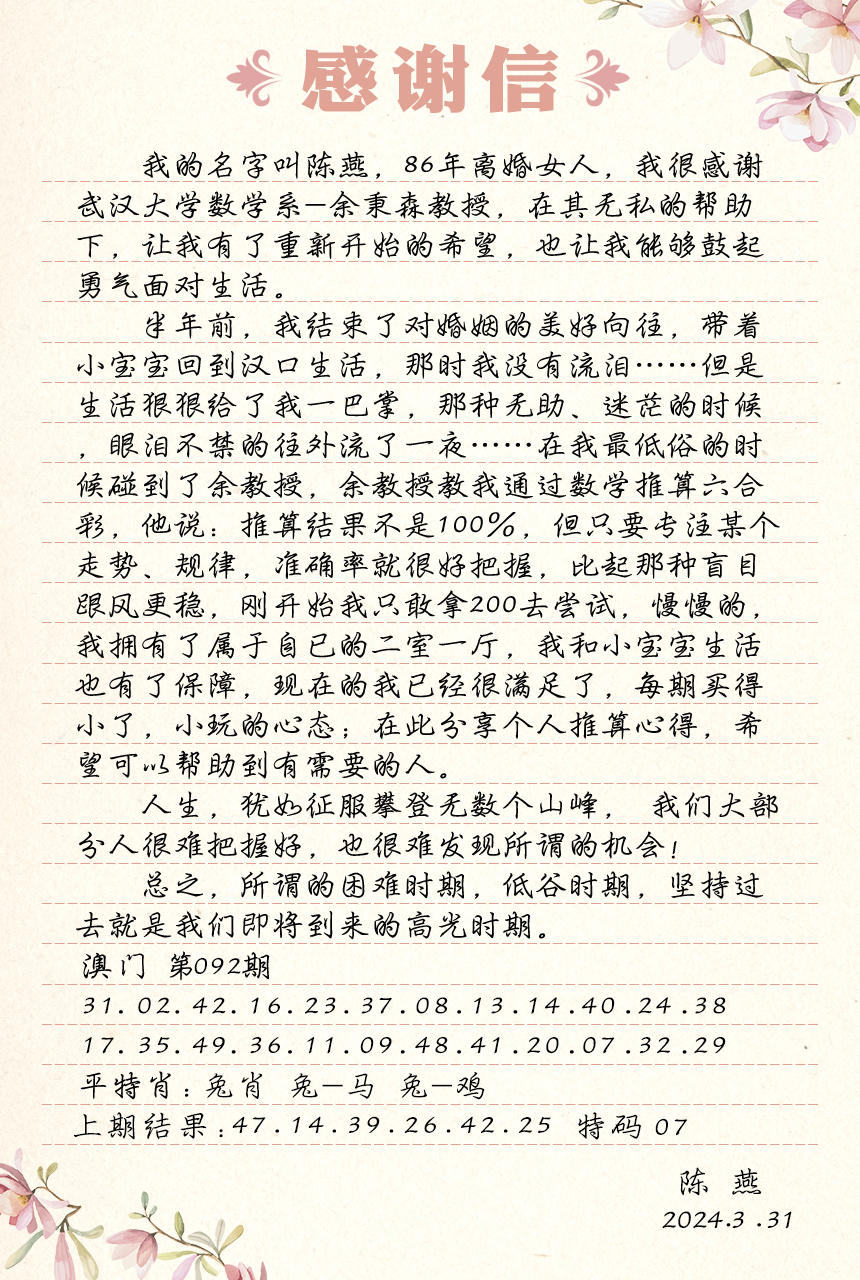 感谢信
我的名字叫陈燕，86年离婚女人，我很感谢
武汉大学数学系—余秉森教授，在其无私的帮助
下，让我有了重新开始的希望，也让我能够鼓起
勇气面对生活。
半年前，我结束了对婚姻的美好向往，带着
小宝宝回到汉口生活，那时我没有流泪……但是
生活狠狠给了我一巴掌，那种无助、迷茫的时候
，眼泪不禁的往外流了一夜……在我最低俗的时
候碰到了余教授，余教授教我通过数学推算六合
彩，他说：推算结果不是100%，但只要专注某个
走势、规律，准确率就很好把握，比起那种盲目
跟风更稳，刚开始我只敢拿200去尝试，慢慢的，
我拥有了属于自已的二室一厅，我和小宝宝生活
也有了保障，现在的我已经很满足了，每期买得
小了，小玩的心态；在此分享个人推算心得，希
望可以帮助到有需要的人。
人生，犹如征服攀登无数个山峰， 我们大部
分人很难把握好，也很难发现所谓的机会！
总之，所谓的困难时期，低谷时期，坚持过
去就是我们即将到来的高光时期。
澳门 第092期
31.02.42.16.23.37.08.13.14.40.24.38
17.35.49.36.11.09.48.41.20.07.32.29
平特肖：兔肖 兔—马 兔—鸡
上期结果：47.14.39.26.42.25 特码 07
陈 燕
2024.3.31